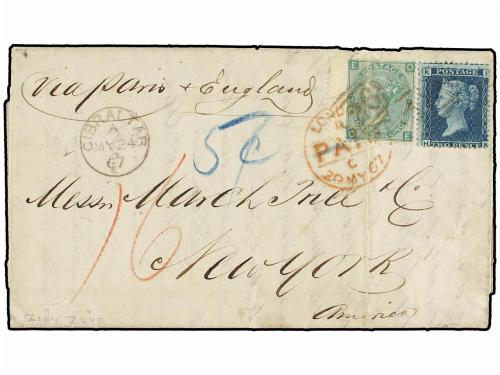 via Paris & England
GIBRALTAR
A
MY 24
67
5c
LONDON
PAID
C
29 MY 67
E O
POSTAGE
O E
K H
POSTAGE
H TWO PENCE K
16
Messrs March Bros & Co
New York
America